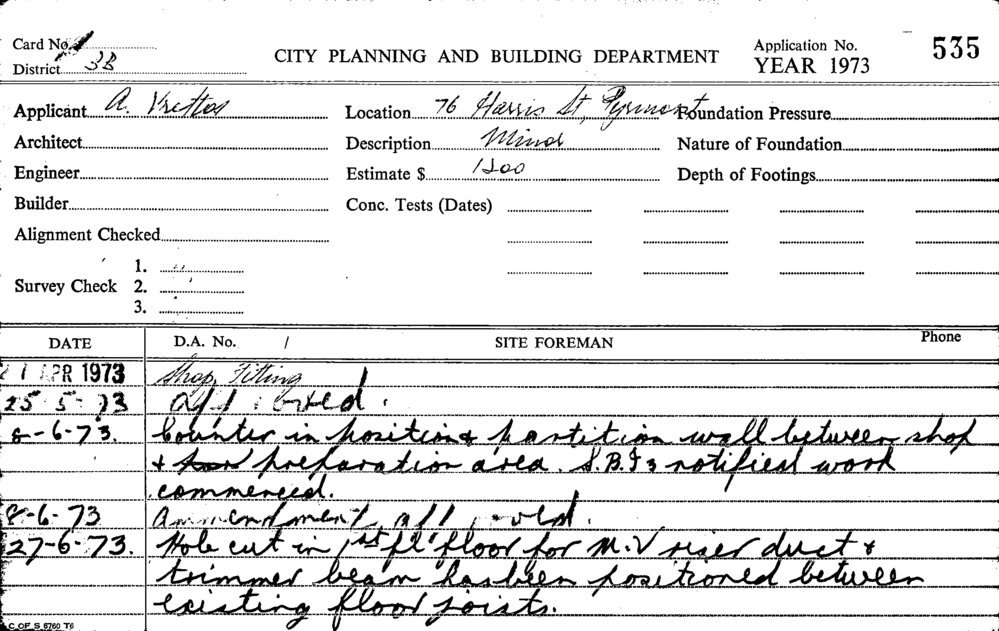 Card No.
District 3B
CITY PLANNING AND BUILDING DEPARTMENT
Application No. 535
YEAR 1973
Applicant A. Vrettos Location 76 Harris St, Pyrmont Foundation Pressure
Architect Description Minor Nature of Foundation
Engineer Estimate $ 1200 Depth of Footings
Builder Conc. Tests (Dates)
Alignment Checked
1.
Survey Check 2.
3.
DATE D.A. No. / SITE FOREMAN Phone
APR 1973 Shop Fitting
25 5 73 approved.
8-6-73. Counter in position & partition wall between shop
& preparation area. notified work
commenced.
8-6-73 Ammendment approved.
27-6-73. Hole cut in 1st fl floor for M.V riser duct &
trimmer beam has been positioned between
existing floor joists.
C OF S 6760 T6